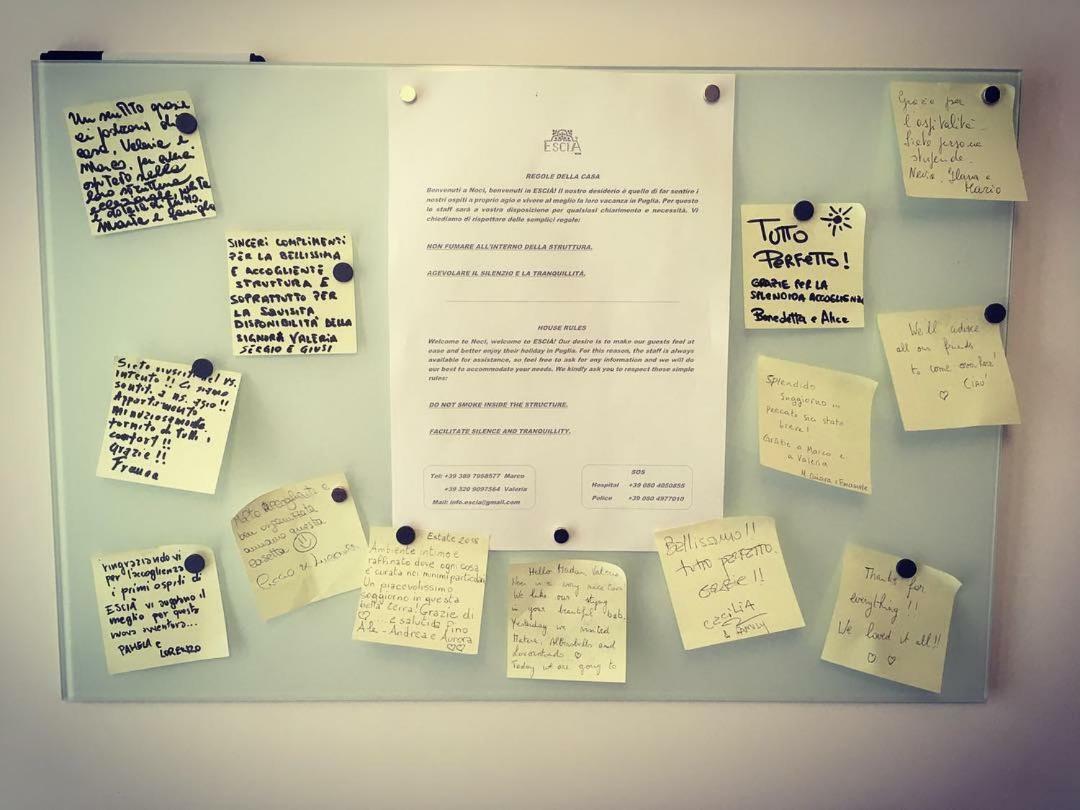 Un sentito grazie
ai padroni di
casa, Valeria e
Marco, per averci
ospitato nella
loro struttura
Maria e famiglia
SINCERI COMPLIMENTI
PER LA BELLISSIMA
E ACCOGLIENTE
STRUTTURA E
SOPRATTUTTO PER
LA SQUISITA
DISPONIBILITÀ DELLA
SIGNORA VALERIA
SERGIO E GIUSI
Siete riusciti nel vs.
intento!! Ci siamo
sentiti a ns. agio!!
Appartamento
minuziosamente
fornito di tutti i
comfort!!
Grazie!!
Franca
Molto accogliente e
ben organizzata
amiamo questa
casetta
ringraziandovi
per l'accoglienza
i primi ospiti di
ESCIÀ vi augurano il
meglio per questa
nuova avventura...
PAMELA E
LORENZO
Estate 2018
Ambiente intimo e
raffinato dove ogni cosa
e' curata nei minimi particolari
Un piacevolissimo
soggiorno in questa
bella terra! Grazie di
... e salutida Fino
Ale - Andrea e Aurora
ESCIÀ
REGOLE DELLA CASA
Benvenuti a Noci, benvenuti in ESCIÀ! Il nostro desiderio è quello di far sentire i
nostri ospiti a proprio agio e vivere al meglio la loro vacanza in Puglia. Per questo
lo staff sarà a vostra disposizione per qualsiasi chiarimento e necessità. Vi
chiediamo di rispettare delle semplici regole:
NON FUMARE ALL'INTERNO DELLA STRUTTURA.
AGEVOLARE IL SILENZIO E LA TRANQUILLITÀ.
HOUSE RULES
Welcome to Noci, welcome to ESCIÀ! Our desire is to make our guests feel at
ease and better enjoy their holiday in Puglia. For this reason, the staff is always
available for assistance, so feel free to ask for any information and we will do
our best to accommodate your needs. We kindly ask you to respect those simple
rules:
DO NOT SMOKE INSIDE THE STRUCTURE.
FACILITATE SILENCE AND TRANQUILLITY.
Tel: +39 389 7958577 Marco
+39 320 9097564 Valeria
Mail: info.escia@gmail.com
SOS
Hospital +39 080 4050855
Police +39 080 4977010
Hello Madam Valeria
Noci is a very nice town
We like our staying
in your beautiful
Yesterday we visited
Matera, Alberobello and
Locorotondo
Today we are going to
Bellissimo!!
tutto PERFETTO.
GRAZIE!!
CECILIA
& family
Grazie per
l'ospitalità
Siete persone
stupende.
Nevia, Ilaria e
Mario
TUTTO
PERFETTO!
GRAZIE PER LA
SPLENDIDA ACCOGLIENZA
Benedetta e Alice
We'll advise
all our friends
to come over here!
CIAO!
Splendido
Soggiorno...
Peccato sia stato
breve!
Grazie a Marco e
a Valeria
Thanks for
everything!!
We loved it all!!